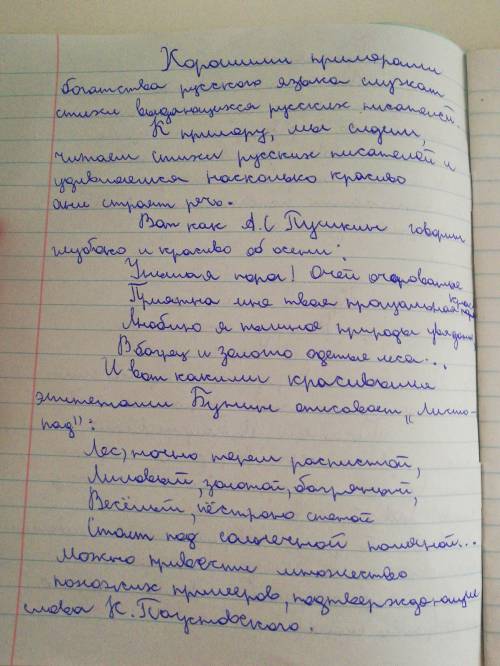 Хорошими примерами
богатства русского языка служат
стихи выдающихся русских писателей.
К примеру, мы сидим,
читаем стихи русских писателей и
удивляемся насколько красиво
они строят речь.
Вот как А.С Пушкин говорит
глубоко и красиво об осени:
Унылая пора! Очей очарованье
Приятна мне твоя прощальная краса
Люблю я пышное природы увяданье
В багрец и золото одетые леса...
И вот какими красивыми
эпитетами Бунин описывает „Листо-
пад":
Лес, точно терем расписной,
Лиловый, золотой, багряный,
Весёлой, пёстрою стеной
Стоит над солнечной поляной...
Можно привести множество
похожих примеров, подтверждающие
слова К. Паустовского.